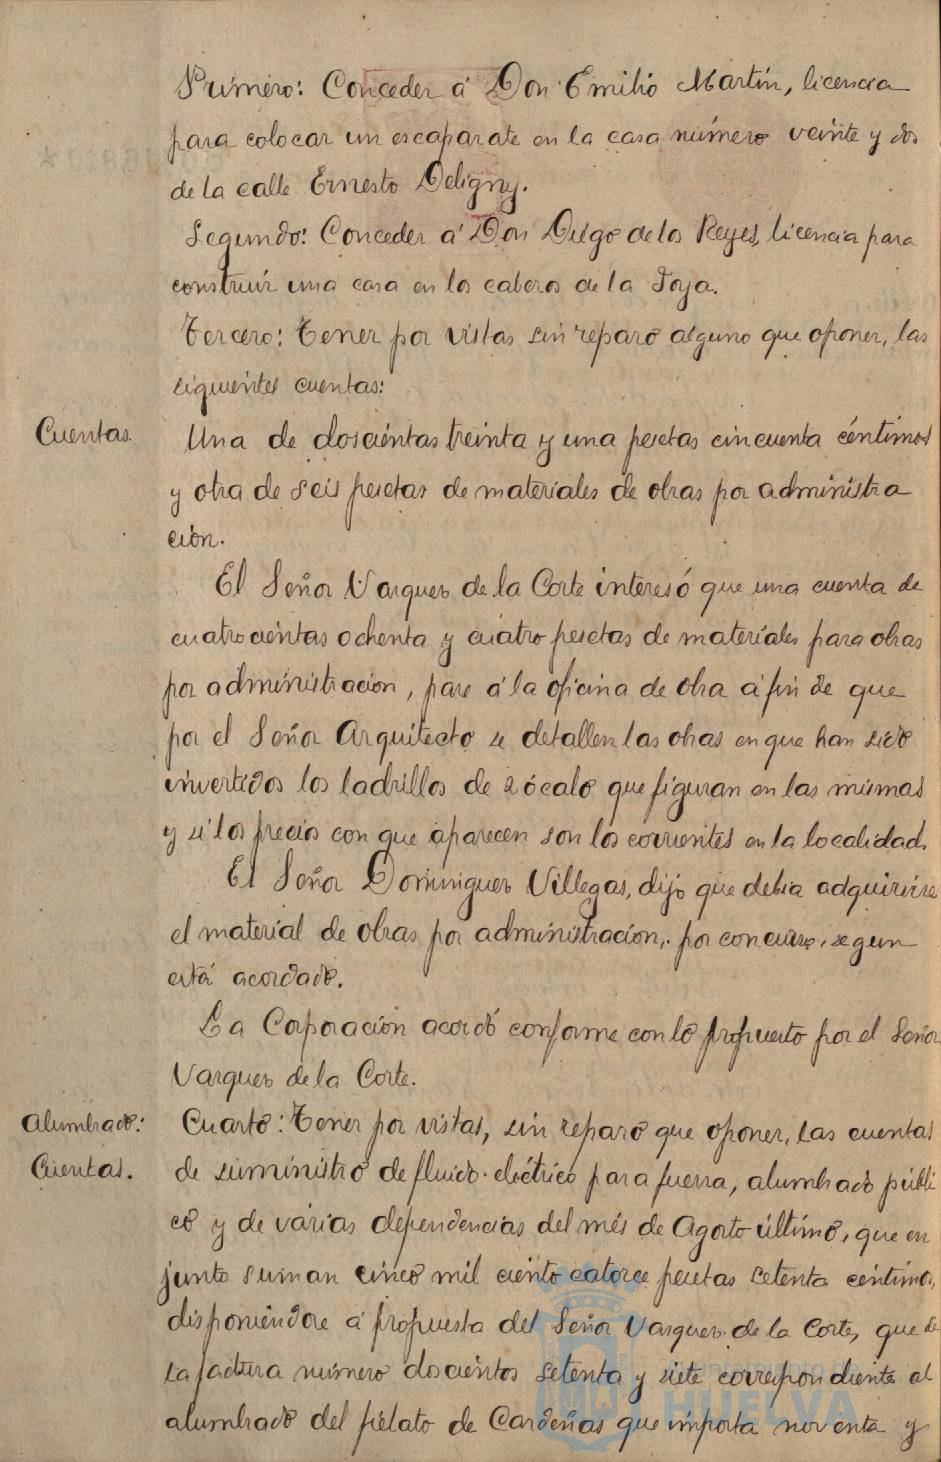 Primero: Conceder á Don Emilio Martín, licencia
para colocar un escaparate en la casa número veinte y dos
de la calle Ernesto Deligny.
Segundo: Conceder á Don Diego de los Reyes, licencia para
construir una casa en los cabezos de la Joya.
Tercero: Tener por vistas sin reparo alguno que oponer, las
siguientes cuentas:
Cuentas.
Una de doscientas treinta y una pesetas cincuenta céntimos
y otra de seis pesetas de materiales de obras por administra
ción.
El Señor Vazquez de la Corte interesó que una cuenta de
cuatrocientas ochenta y cuatro pesetas de materiales para obras
por administracion, pase á la oficina de obra á fin de que
por el Señor Arquitecto se detallen las obras en que han sido
invertidos los ladrillos de zócalo que figuran en las mismas
y si los precios con que aparecen son los corrientes en la localidad.
El Señor Dominguez Villegas, dijo que debia adquirirse
el material de obras por administración, por concurso, segun
está acordado.
La Corporación acordó conforme con lo propuesto por el Señor
Vazquez de la Corte.
Alumbrado:
Cuentas.
Cuarto: Tener por vistas, sin reparo que oponer, las cuentas
de suministro de fluido eléctrico para fuerza, alumbrado públi
co y de várias dependencias del més de Agosto último, que en
junto suman cinco mil ciento catorce pesetas setenta céntimos,
disponiéndose á propuesta del Señor Vazquez de la Corte, que de
la factura número doscientos setenta y siete correspondiente al
alumbrado del fielato de Cardeñas que importa noventa y
Ayuntamiento de
HUELVA